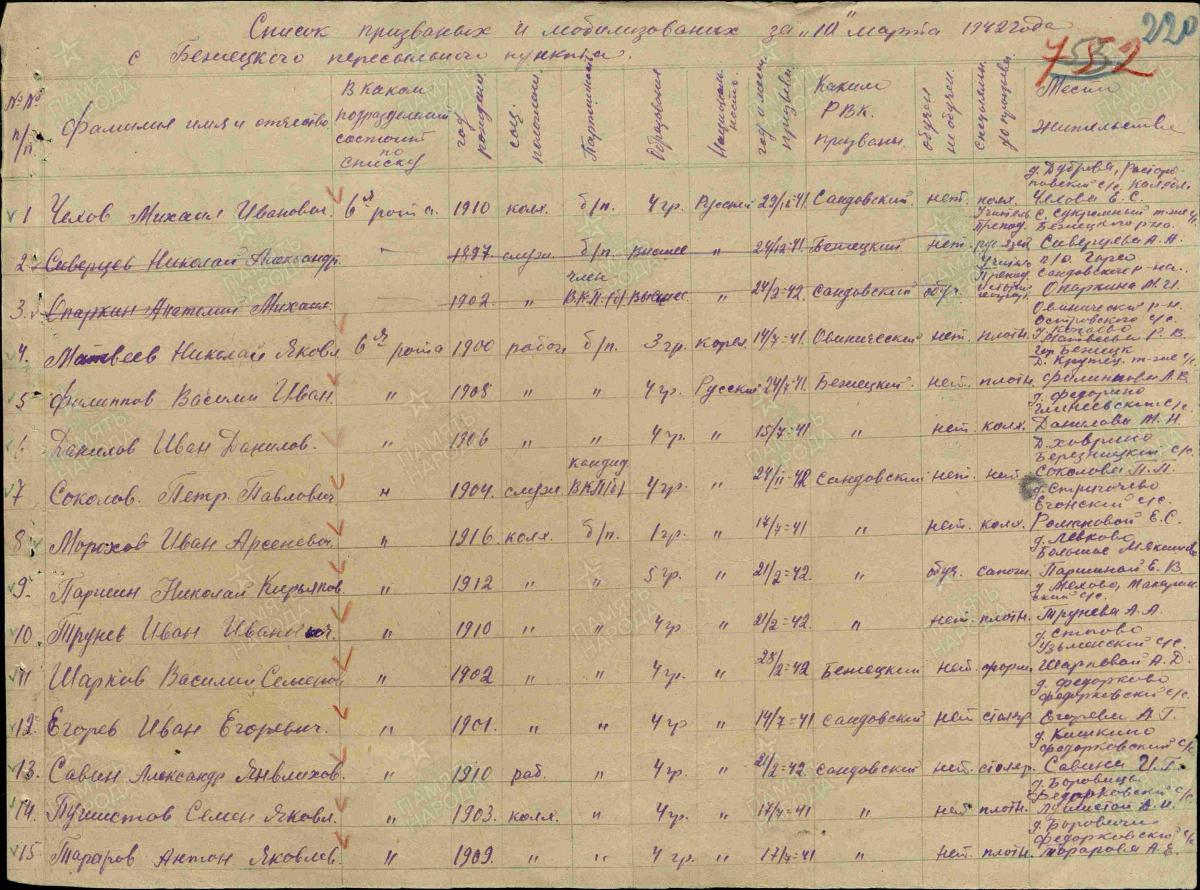 Список призваных и мобилизованих за "10" марта 1942 года
с Бежецкого пересыльного пункта.
220
752
№№ п/п. фамилия имя и отчество В каком подразделении состоит по списку год рождения соц. положение Партийность Образования Национальность год и мес. призыва Каким РВК. призваны. обучен не обучен Место жительства
д. Дуброва,
1 Чехов Михаил Иванович. 6я рота. 1910 колх. б/п. 4 гр. Русский Сандовский нет. колх. Чехова Е. С.
Бежецкого р-на.
2 Сиверцев Николай Александр. " 1897 служ. б/п. высшее " 24/12-41. Бежецкий нет. Сиверцева А. А.
член Сандовского р-на.
3. Опаркин Анатолий Михаил. 1902. " ВКП(б) высшее. " 24/2-42. Сандовский обуч. Опаркина М. И.
Овинический р-н.
Островского с/с.
4. Матвеев Николай Яковл. 6я рота 1900 рабоч б/п. 3 гр. Карел. 14/7-41. Овинический нет. плотн. Матвеева Р. В.
гор Бежецк
5 Филиппов Василий Иван. " 1905 " " 4 гр. Русский 24/7-41. Бежецкий. нет. плотн. Филиппова А. В.
д. Федорино
6 Данилов Иван Данилов. " 1906 " " 4 гр. " 15/7-41 " нет. колх. Данилова М. Н.
Д. Ховрино
кандид. Березницкий с/с.
7 Соколов. Петр. Павлович " 1904. служ. ВКП(б) 4 гр. " 24/II-42 Сандовский нет. нет. Соколова П. П.
Егонский с/с.
8. Морохов Иван Арсеневич. " 1916. колх. б/п. 1 гр. " 17/7-41 " нет. колх. Романовой Е. С.
д. Левково
9. Паршин Николай Кирьяков. " 1912 " " 5 гр. " 21/2-42. " обуч. сапож. Паршиной Е. В.
д. Мехово,
10 Трунев Иван Иванович. " 1910 " " 4 гр " 21/2-42 " нет. плотн. Трунева А. А.
11 Шарков Василий Семенов " 1902 " " 4 гр. " 28/2-42 Бежецкий нет. Шарковой А. Д.
д. Федорково
Федорковский с/с.
12. Егорев Иван Егоревич. " 1901. " " 4 гр. " 14/7-41 Сандовский нет столяр. Егорева А. Г.
д. Кишкино
Федорковский с/с
13. Савин Александр " 1910 раб. " 4 гр. " 21/2-42. Сандовский нет. столяр. Савина И. Г.
д. Боровичи
Федорковский с/с
14. Пушистов Семен Яковл. " 1903. колх. " 4 гр. " 17/7-41 " нет. плотн. Пушистой А. И.
д. Боровичи
Федорковский с/с
15 Тараров Антон Яковлев. " 1909. " " 4 гр. " 17/7-41 " нет. плотн. Тарарова А. Е.
ПАМЯТЬ НАРОДА